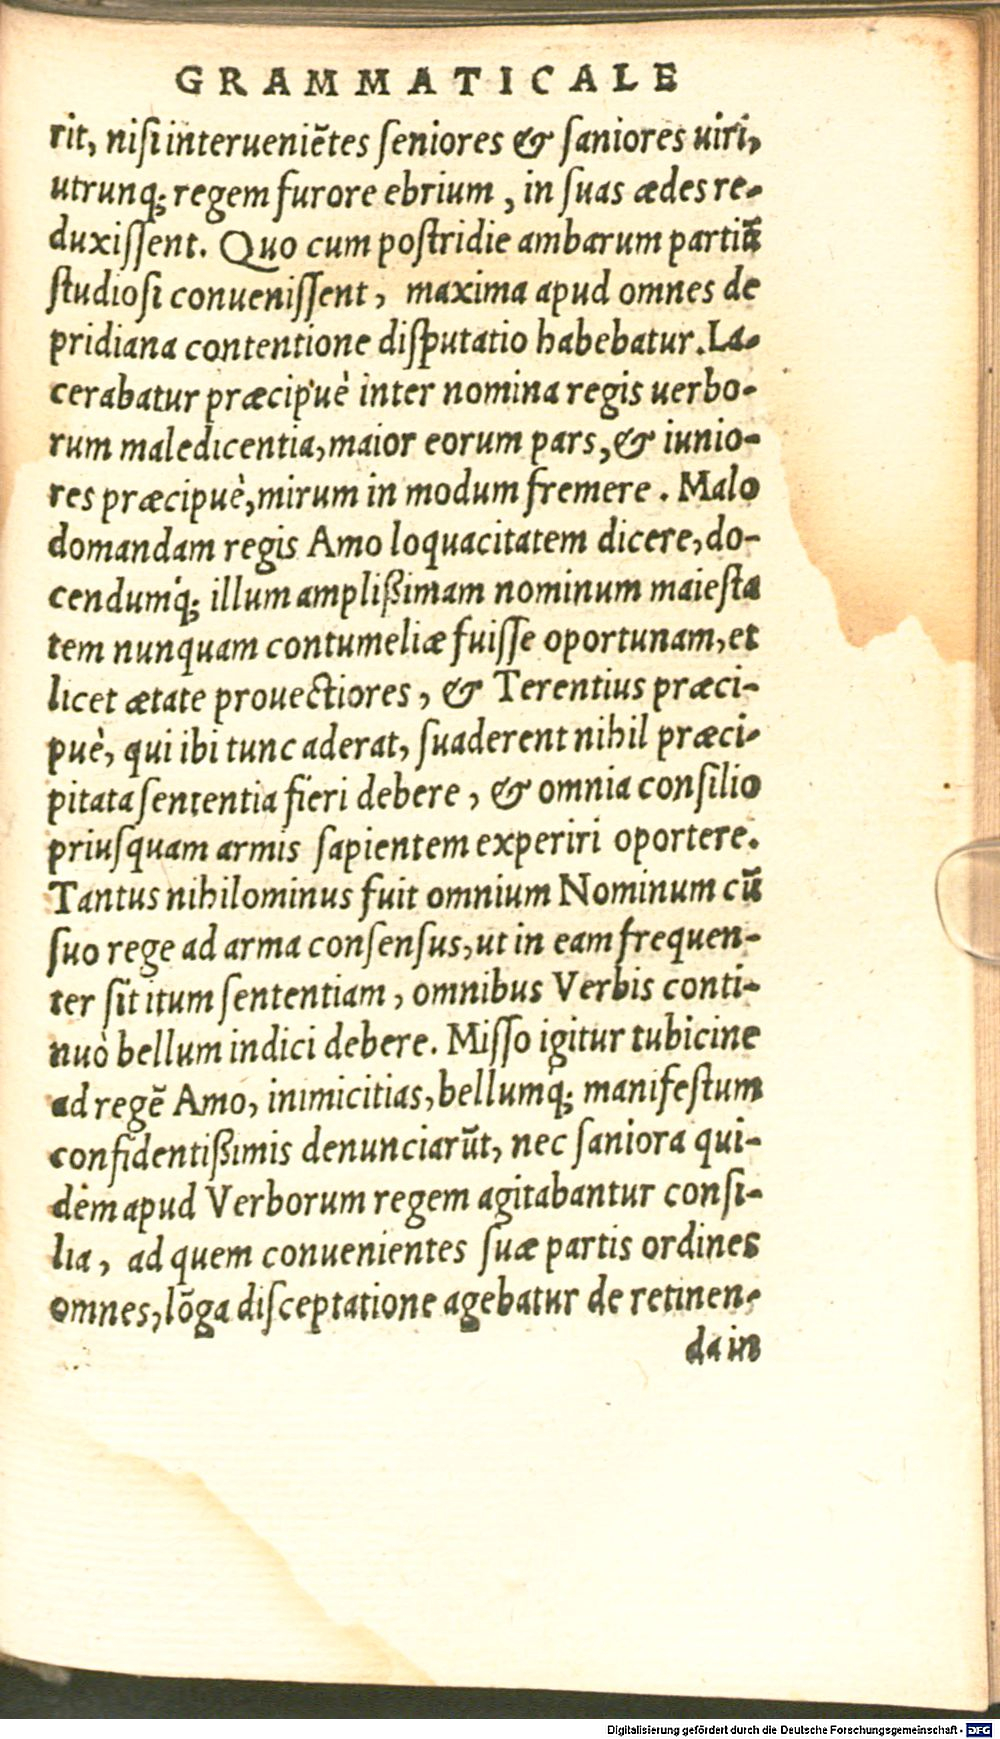 GRAMMATICALE
rit, nisi interueniẽtes seniores & saniores uiri,
utrunq; regem furore ebrium, in suas ædes re-
duxissent. Quo cum postridie ambarum partiũ
studiosi conuenissent, maxima apud omnes de
pridiana contentione disputatio habebatur. La-
cerabatur præcipuè inter nomina regis uerbo-
rum maledicentia, maior eorum pars, & iunio-
res præcipuè, mirum in modum fremere. Malo
domandam regis Amo loquacitatem dicere, do-
cendumq́; illum amplißimam nominum maiesta
tem nunquam contumeliæ fuisse oportunam, et
licet ætate prouectiores, & Terentius præci-
puè, qui ibi tunc aderat, suaderent nihil præci-
pitata sententia fieri debere, & omnia consilio
priusquam armis sapientem experiri oportere.
Tantus nihilominus fuit omnium Nominum cũ
suo rege ad arma consensus, ut in eam frequen-
ter sit itum sententiam, omnibus Verbis conti-
nuò bellum indici debere. Misso igitur tubicine
ad regẽ Amo, inimicitias, bellumq́; manifestum
confidentißimis denunciarũt, nec saniora qui-
dem apud Verborum regem agitabantur consi-
lia, ad quem conuenientes suæ partis ordines
omnes, lõga disceptatione agebatur de retinen-
da in
Digitalisierung gefördert durch die Deutsche Forschungsgemeinschaft - DFG